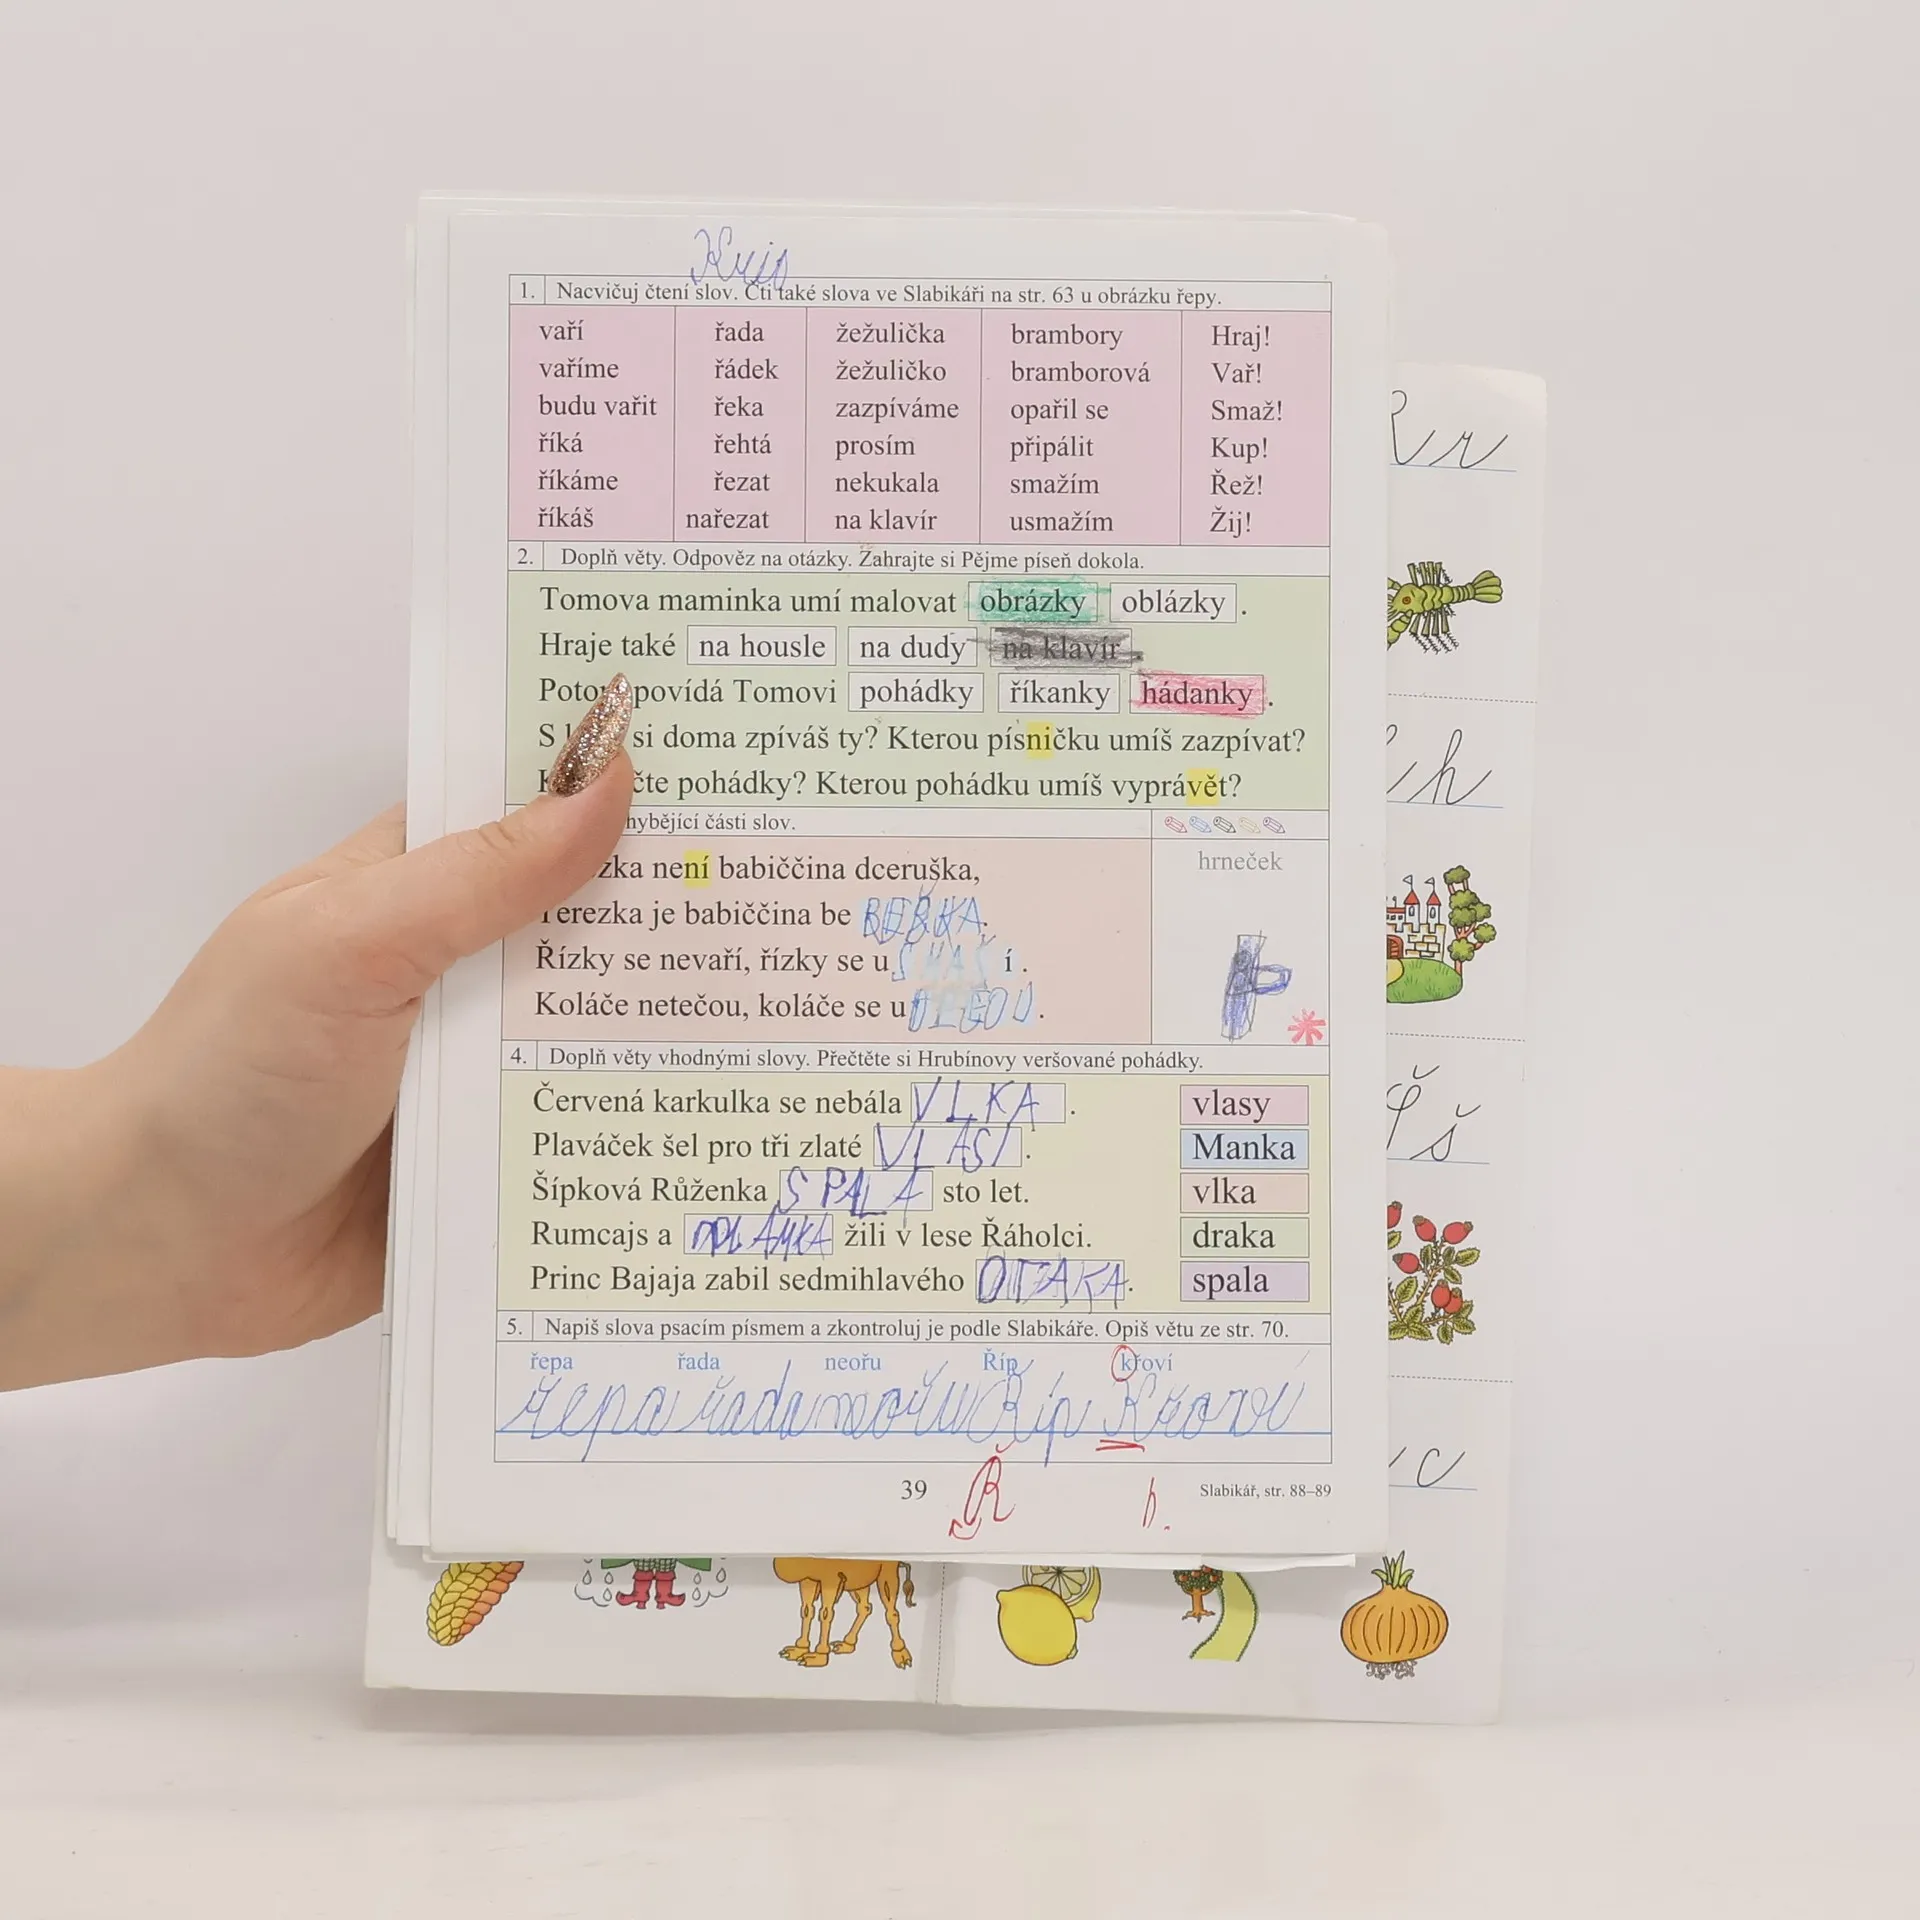 1. Nacvičuj čtení slov. Čti také slova ve Slabikáři na str. 63 u obrázku řepy.
vaří řada žežulička brambory Hraj!
vaříme řádek žežuličko bramborová Vař!
budu vařit řeka zazpíváme opařil se Smaž!
říká řehtá prosím připálit Kup!
říkáme řezat nekukala smažím Řež!
říkáš nařezat na klavír usmažím Žij!
2. Doplň věty. Odpověz na otázky. Zahrajte si Pějme píseň dokola.
Tomova maminka umí malovat obrázky oblázky .
Hraje také na housle na dudy na klavír .
povídá Tomovi pohádky říkanky hádanky .
S si doma zpíváš ty? Kterou písničku umíš zazpívat?
pohádky? Kterou pohádku umíš vyprávět?
části slov.
není babiččina dceruška,
hrneček
Terezka je babiččina be
Řízky se nevaří, řízky se u SMAŠ í .
Koláče netečou, koláče se u
4. Doplň věty vhodnými slovy. Přečtěte si Hrubínovy veršované pohádky.
Červená karkulka se nebála VLKA . vlasy
Plaváček šel pro tři zlaté VLASI . Manka
Šípková Růženka SPALA sto let. vlka
Rumcajs a žili v lese Řáholci. draka
Princ Bajaja zabil sedmihlavého . spala
5. Napiš slova psacím písmem a zkontroluj je podle Slabikáře. Opiš větu ze str. 70.
řepa řada neořu Říp křoví
řepa řada neořu Říp Křoví
39 Ř Slabikář, str. 88–89
r
h
Š š
c